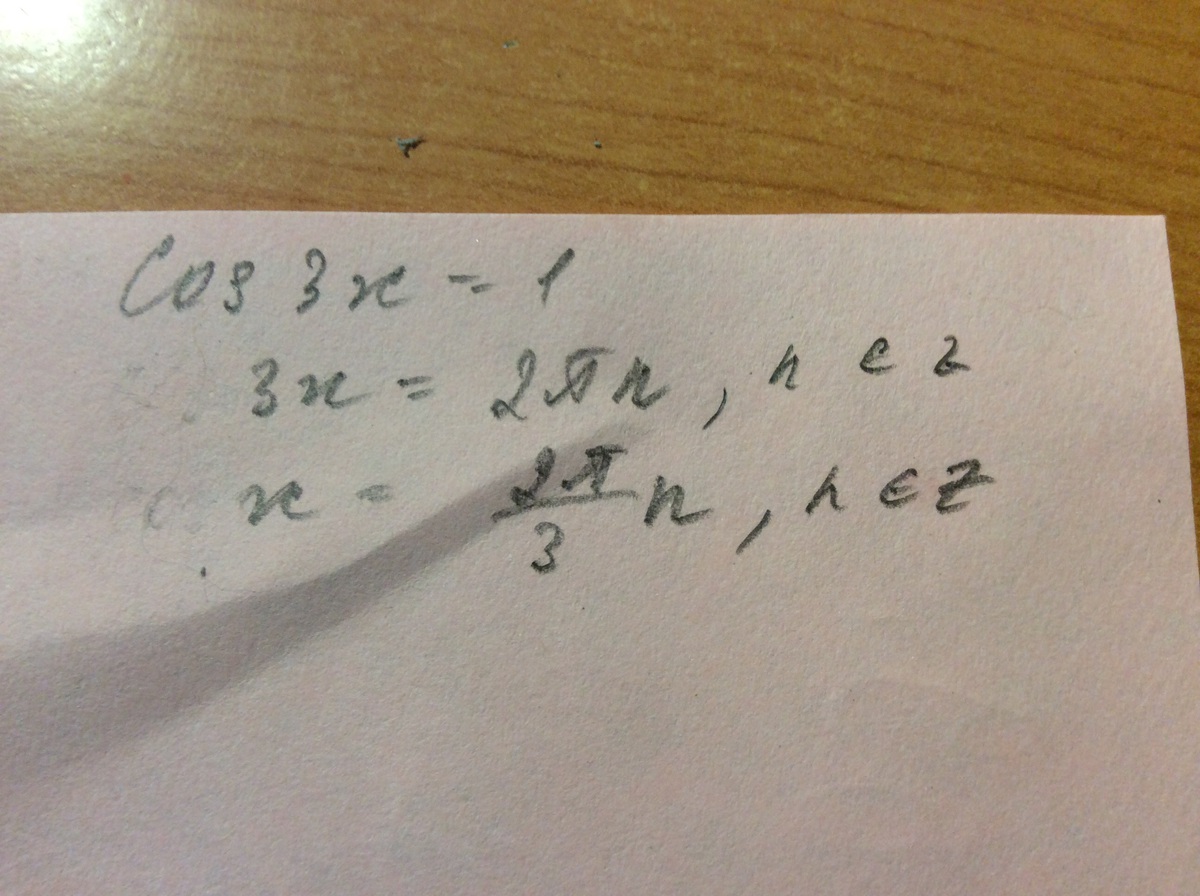 Cos 3x = 1
3x = 2πn, n ∈ z
x = 2π/3 n, n ∈ Z